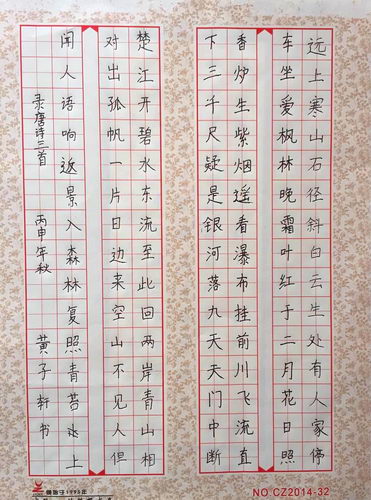 远上寒山石径斜白云生处有人家停
车坐爱枫林晚霜叶红于二月花日照
香炉生紫烟遥看瀑布挂前川飞流直
下三千尺疑是银河落九天天门中断
楚江开碧水东流至此回两岸青山相
对出孤帆一片日边来空山不见人但
闻人语响返景入森林复照青苔上
录唐诗三首 丙申年秋 黄子轩书
始于1995年
NO.CZ2014-32